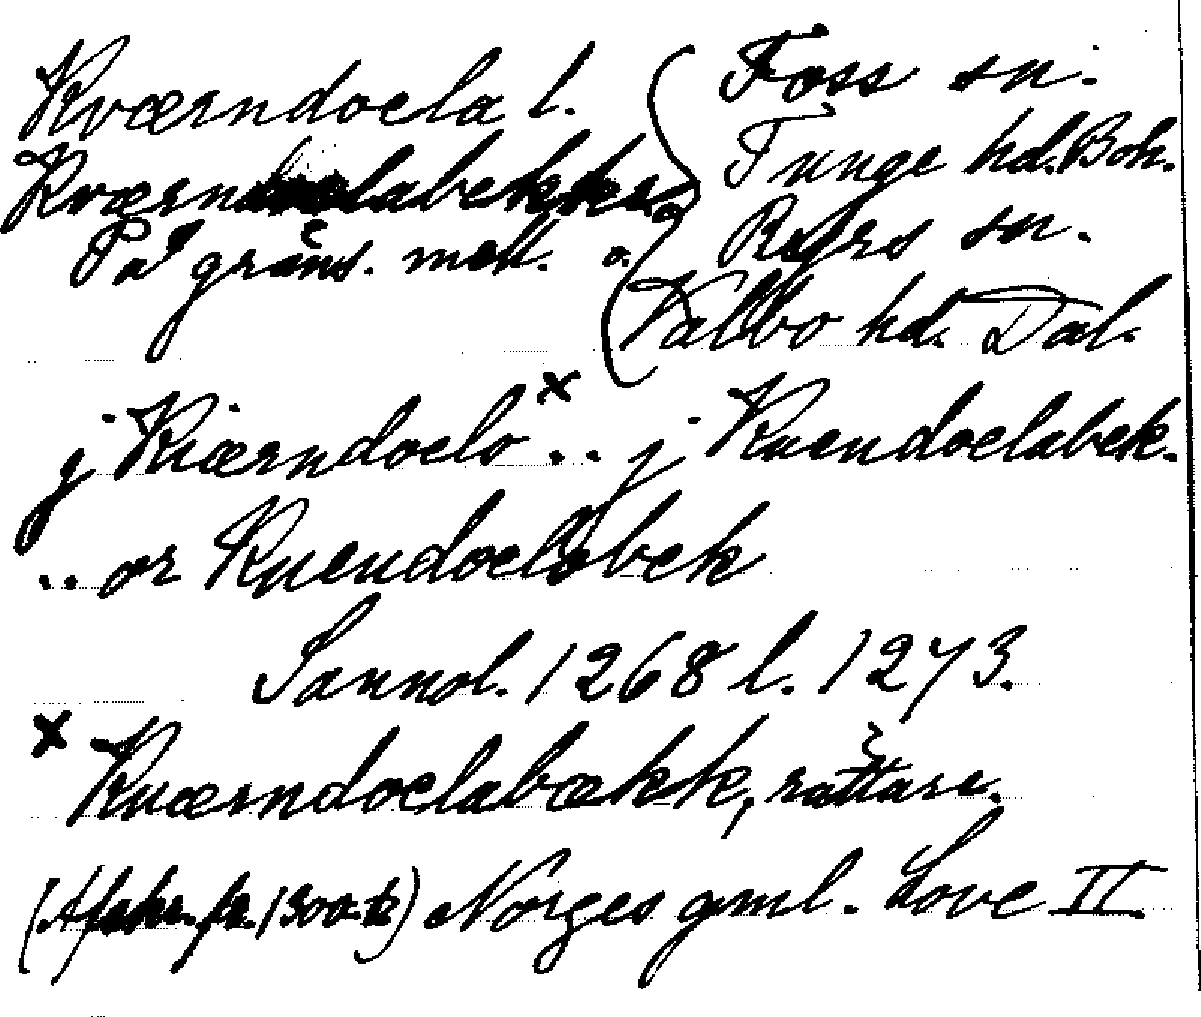 Kværndoela l. Foss sn.
Kværndoelabekkr. Tunge hd. Boh.
På gräns. mell. o. Rölrs sn.
Valbo hd. Dal.
j Kiærndoelo x .. j Knendoelabek.
.. or Knendoelabek
Sannol. 1268 l. 1273.
x Kuærndoelabækk, rättare.
(Afskr. fr. 1300-t.) Norges gml. Love II.